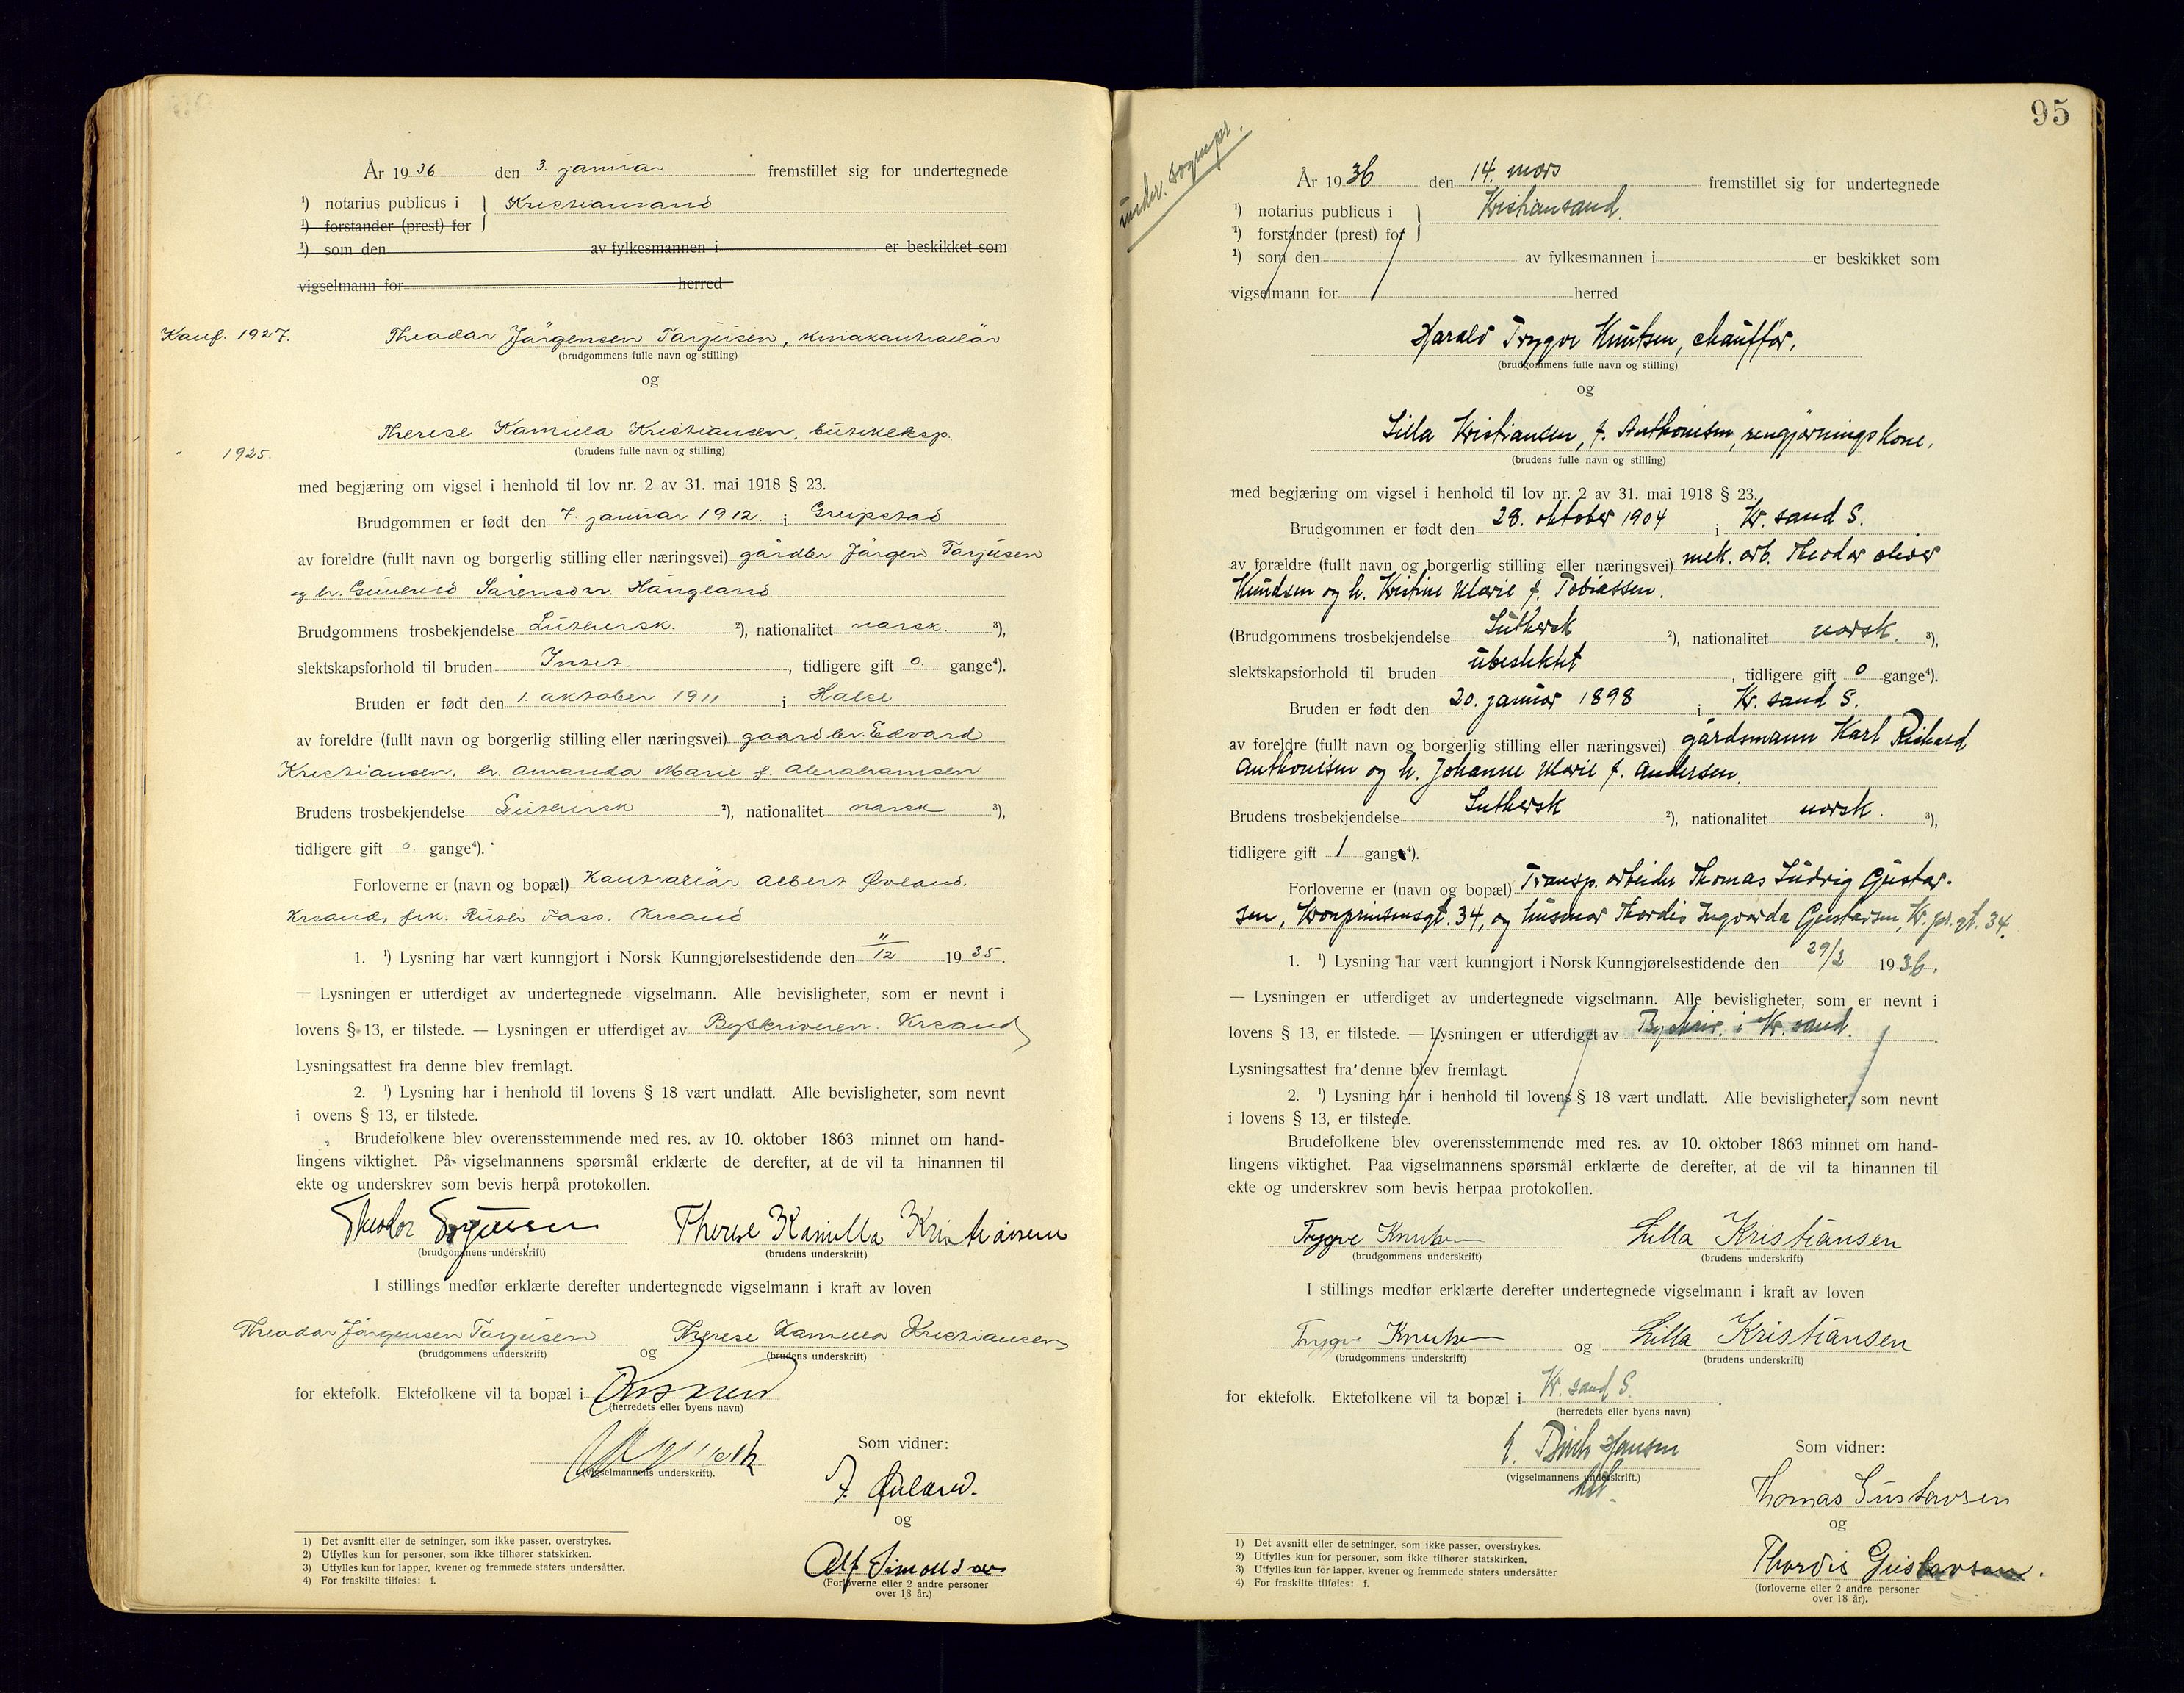 År 1936 den 3. januar fremstillet sig for undertegnede
¹) notarius publicus i } Kristiansand
¹) forstander (prest) for
¹) som den av fylkesmannen i er beskikket som
vigselmann for herred
Konf. 1927. Theodor Jörgensen Tarjeisen, kinokontrollör
(brudgommens fulle navn og stilling)
og
Therese Kamilla Kristiansen, butikeksp.
" 1925.
(brudens fulle navn og stilling)
med begjæring om vigsel i henhold til lov nr. 2 av 31. mai 1918 § 23.
Brudgommen er født den 7. januar 1912. i Greipstad
av foreldre (fullt navn og borgerlig stilling eller næringsvei) gårdbr. Jörgen Tarjeisen
og h. Gunhild Sörensdtr. Haugland
Brudgommens trosbekjendelse Luthersk. ²), nationalitet norsk. ³),
slektskapsforhold til bruden Intet. , tidligere gift 0 gange⁴).
Bruden er født den 1. oktober 1911 i Halse
av foreldre (fullt navn og borgerlig stilling eller næringsvei) gaardbr. Edvard
Kristiansen, h. Amanda Marie f. Abrahamsen
Brudens trosbekjendelse Luthersk ²), nationalitet norsk ³),
tidligere gift 0 gange⁴).
Forloverne er (navn og bopæl) Kontrollör Albert Øvland.
Krsand, frk. Ruth Foss. Krsand
1. ¹) Lysning har vært kunngjort i Norsk Kunngjørelsestidende den 11/12 1935.
— Lysningen er utferdiget av undertegnede vigselmann. Alle bevisligheter, som er nevnt i
lovens § 13, er tilstede. — Lysningen er utferdiget av Byskriveren. Krsand
Lysningsattest fra denne blev fremlagt.
2. ¹) Lysning har i henhold til lovens § 18 vært undlatt. Alle bevisligheter, som nevnt
i ovens § 13, er tilstede.
Brudefolkene blev overensstemmende med res. av 10. oktober 1863 minnet om hand-
lingens viktighet. På vigselmannens spørsmål erklærte de derefter, at de vil ta hinannen til
ekte og underskrev som bevis herpå protokollen.
Theodor Tarjeisen Therese Kamilla Kristiansen
(brudgommens underskrift) (brudens underskrift)
I stillings medfør erklærte derefter undertegnede vigselmann i kraft av loven
Theodor Jörgensen Tarjeisen og Therese Kamilla Kristiansen
(brudgommens underskrift) (brudens underskrift)
for ektefolk. Ektefolkene vil ta bopæl i Krsand
(herredets eller byens navn)
(vigselmannens underskrift).
Som vidner:
Øvland.
og
Alf Simonsen
(Forloverne eller 2 andre personer
over 18 år.)
1) Det avsnitt eller de setninger, som ikke passer, overstrykes.
2) Utfylles kun for personer, som ikke tilhører statskirken.
3) Utfylles kun for lapper, kvener og fremmede staters undersåtter.
4) For fraskilte tilføies: f.
95
under. sognepr.
År 1936 den 14. mars fremstillet sig for undertegnede
¹) notarius publicus i } Kristiansand.
¹) forstander (prest) for
¹) som den av fylkesmannen i er beskikket som
vigselmann for herred
Harald Trygve Knutsen, chauffør,
(brudgommens fulle navn og stilling)
og
Lilla Kristiansen, f. Anthonisen, rengjørningskone,
(brudens fulle navn og stilling)
med begjæring om vigsel i henhold til lov nr. 2 av 31. mai 1918 § 23.
Brudgommen er født den 28. oktober 1904 i Kr. sand S.
av forældre (fullt navn og borgerlig stilling eller næringsvei) mek. arb. Theodor Oliver
Knudsen og h. Kristine Marie f. Tobiassen.
(Brudgommens trosbekjendelse Luthersk ²), nationalitet norsk. ³),
slektskapsforhold til bruden ubeslektet , tidligere gift 0 gange⁴).
Bruden er født den 20. januar 1898 i Kr. sand S.
av foreldre (fullt navn og borgerlig stilling eller næringsvei) gårdsmann Karl Rikard
Anthonisen og h. Johanne Marie f. Andersen.
Brudens trosbekjendelse Luthersk ²), nationalitet norsk. ³),
tidligere gift 1 gang⁴).
Forloverne er (navn og bopæl) Transp. arbeider Thomas Ludvig Gustav-
sen, Kronprinsensgt. 34, og husmor Thordis Ingvarda Gustavsen, Kr. pr. gt. 34.
1. ¹) Lysning har vært kunngjort i Norsk Kunngjørelsestidende den 29/2 1936.
— Lysningen er utferdiget av undertegnede vigselmann. Alle bevisligheter, som er nevnt i
lovens § 13, er tilstede. — Lysningen er utferdiget av Byskriv. i Kr. sand.
Lysningsattest fra denne blev fremlagt.
2. ¹) Lysning har i henhold til lovens § 18 vært undlatt. Alle bevisligheter, som nevnt
i lovens § 13, er tilstede.
Brudefolkene blev overensstemmende med res. av 10. oktober 1863 minnet om hand-
lingens viktighet. Paa vigselmannens spørsmål erklærte de derefter, at de vil ta hinannen til
ekte og underskrev som bevis herpaa protokollen.
Trygve Knutsen Lilla Kristiansen
(brudgommens underskrift) (brudens underskrift)
I stillings medfør erklærte derefter undertegnede vigselmann i kraft av loven
Trygve Knutsen og Lilla Kristiansen
(brudgommens underskrift) (brudens underskrift)
for ektefolk. Ektefolkene vil ta bopæl i Kr. sand S.
(herredets eller byens navn)
Birch Hansen
(vigselmannens underskrift.)
Som vidner:
Thomas Gustavsen
og
Thordis Gustavsen.
(forloverne eller 2 andre personer
over 18 år).
1) Det avsnitt eller de setninger, som ikke passer, overstrykes.
2) Utfylles kun for personer, som ikke tilhører statskirken.
3) Utfylles kun for lapper, kvener og fremmede staters undersåtter
4) For fraskilte tilføies: f.